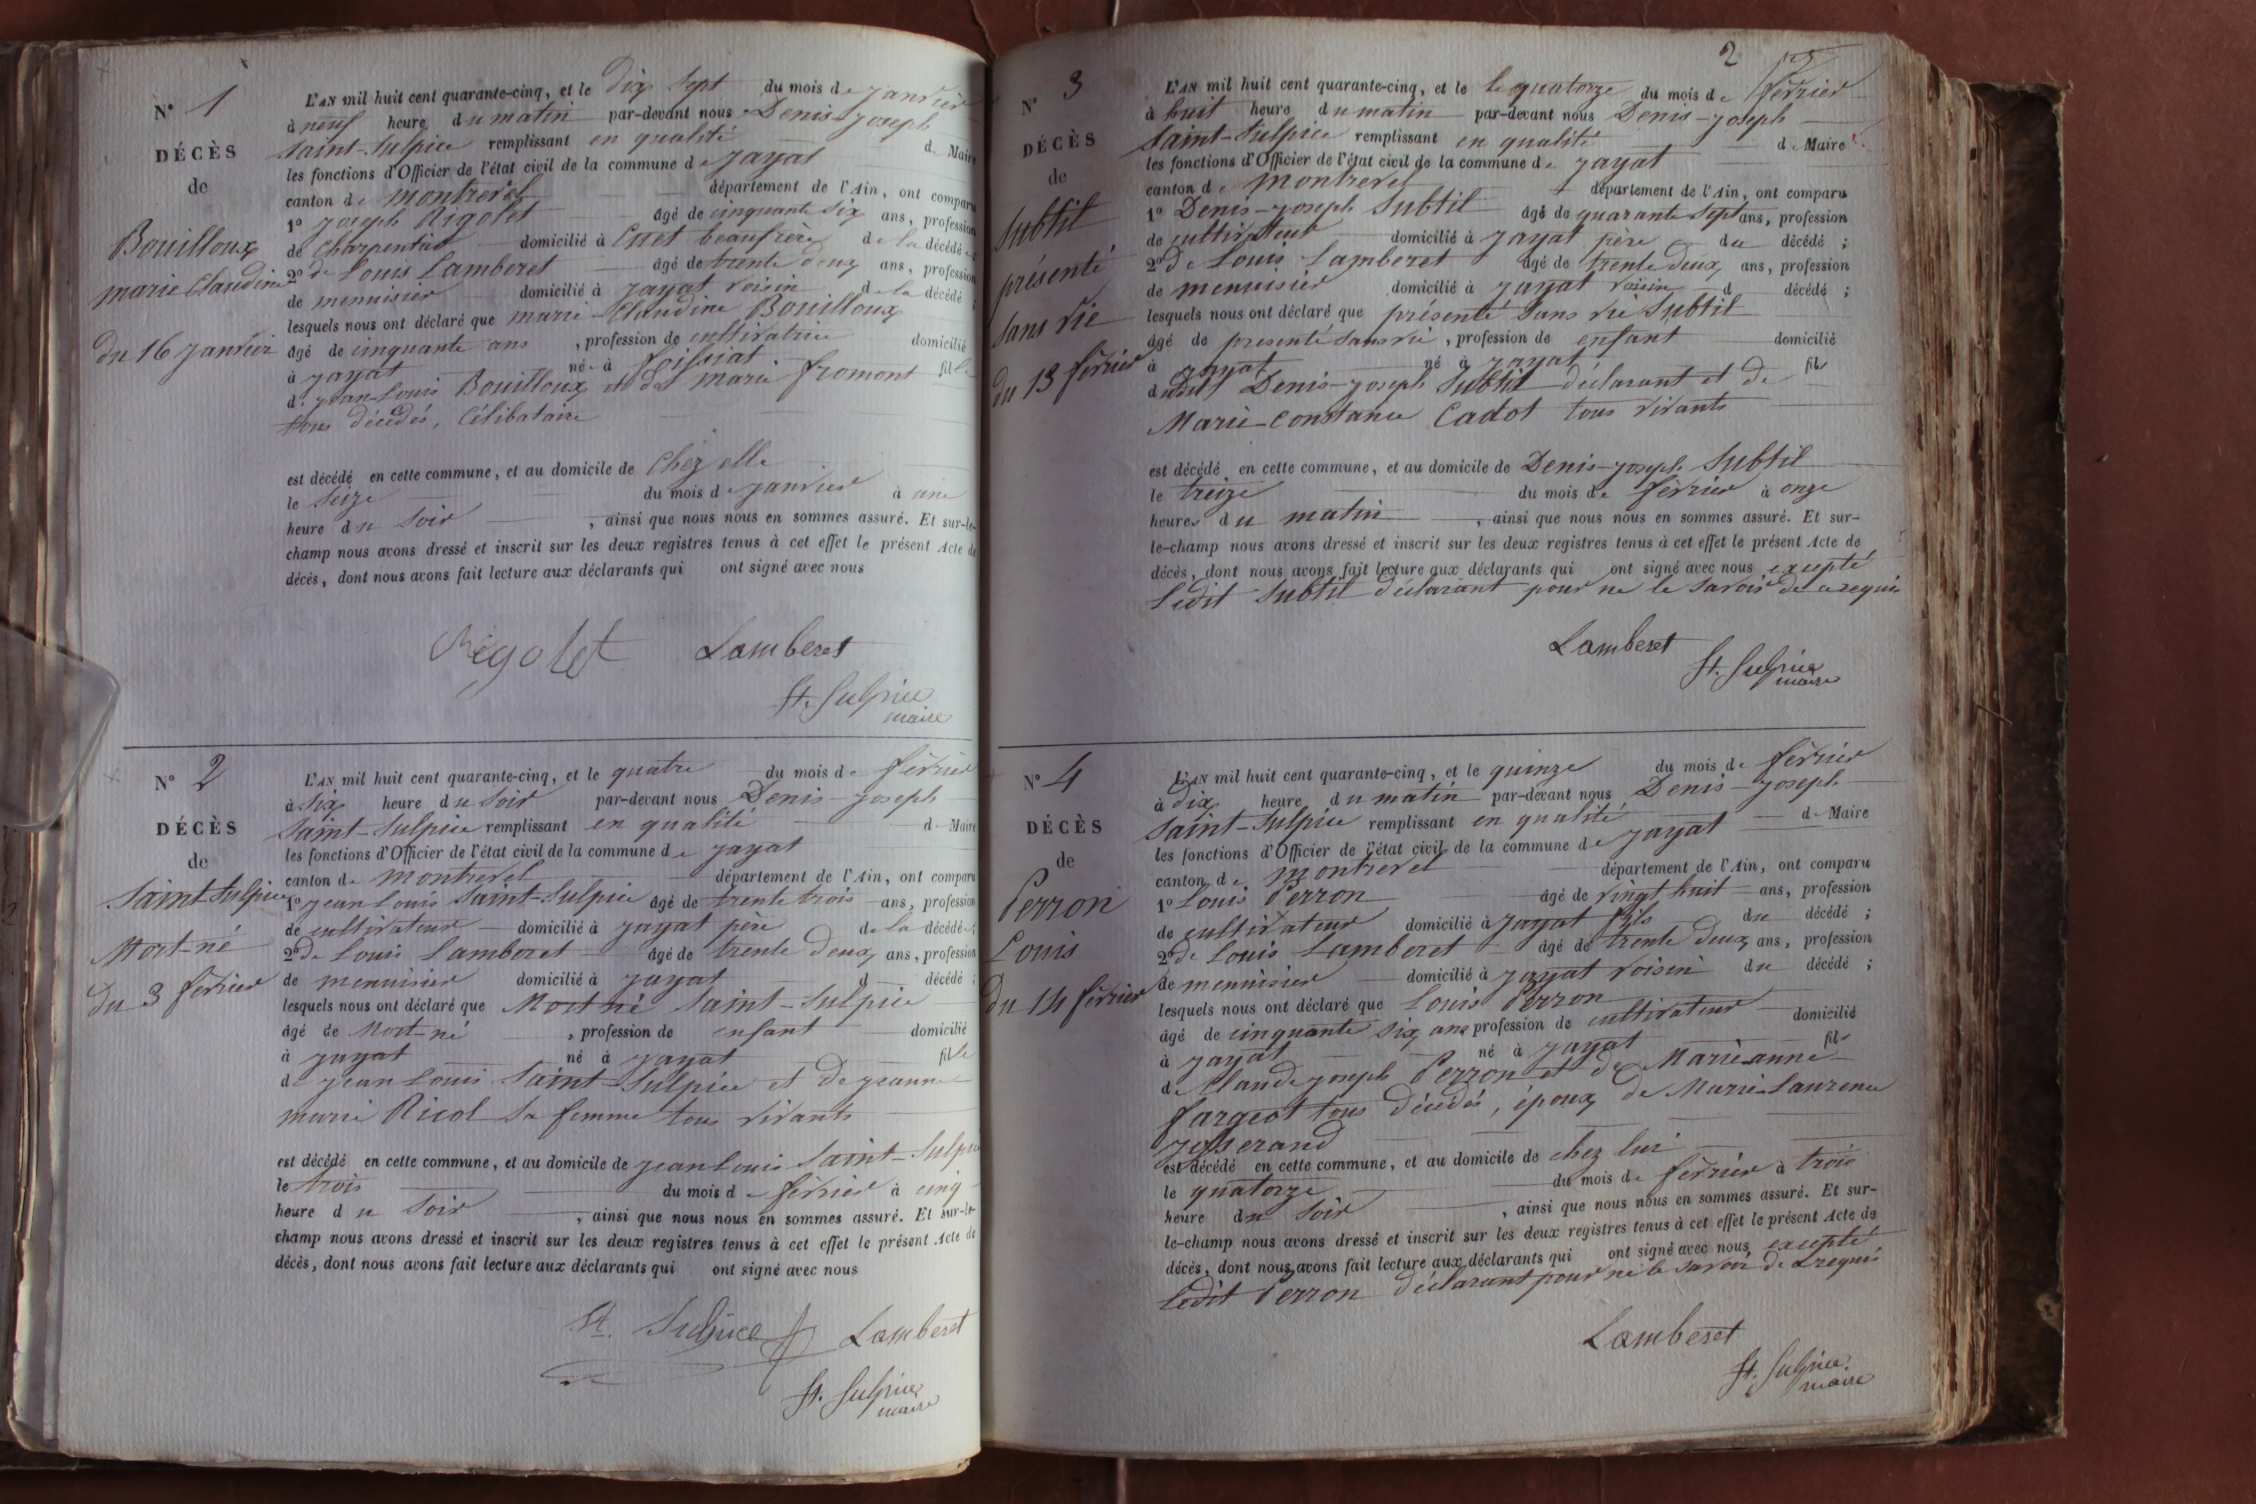 N° 1
DÉCÈS
de
Bouilloux
marie Claudine
du 16 janvier
L'AN mil huit cent quarante-cinq, et le dix sept du mois de janvier
à neuf heure du matin par-devant nous Denis-joseph
Saint-Sulpice remplissant en qualité de Maire
les fonctions d'Officier de l'état civil de la commune de jayat
canton de montrevel département de l'Ain, ont comparu
1° joseph Rigolet âgé de cinquante six ans, profession
de Charpentier domicilié à Cuet beaufrère de la décédée;
2° de Louis Lamberet âgé de trente deux ans, profession
de menuisier domicilié à jayat voisin de la décédé ;
lesquels nous ont déclaré que marie-Claudine Bouilloux
âgé de cinquante ans , profession de cultivatrice domicilié
à jayat née à foissiat fille
de jean-Louis Bouilloux et de marie fromont
tous décédés, Célibataire
est décédé en cette commune, et au domicile de Chez elle
le Seize du mois de janvier à une
heure du Soir , ainsi que nous nous en sommes assuré. Et sur-le-
champ nous avons dressé et inscrit sur les deux registres tenus à cet effet le présent Acte de
décès, dont nous avons fait lecture aux déclarants qui ont signé avec nous
Rigolet Lamberet
St. Sulpice
maire
N° 2
DÉCÈS
de
Saint Sulpice
Mort-né
du 3 février
L'AN mil huit cent quarante-cinq, et le quatre du mois de février
à Six heure du Soir par-devant nous Denis-joseph
Saint-Sulpice remplissant en qualité de Maire
les fonctions d'Officier de l'état civil de la commune de jayat
canton de montrevel département de l'Ain, ont comparu
1° jean Louis Saint-Sulpice âgé de trente trois ans, profession
de cultivateur domicilié à jayat père de la décédée;
2° de Louis Lamberet âgé de trente deux ans, profession
de menuisier domicilié à jayat d décédé ;
lesquels nous ont déclaré que Mort né Saint-Sulpice
âgé de Mort-né , profession de enfant domicilié
à jayat né à jayat fille
de jean Louis Saint-Sulpice et de jeanne
marie Ricol Sa femme tous vivants
est décédé en cette commune, et au domicile de jean Louis Saint-Sulpice
le trois du mois de février à cinq
heure du Soir , ainsi que nous nous en sommes assuré. Et sur-le-
champ nous avons dressé et inscrit sur les deux registres tenus à cet effet le présent Acte de
décès, dont nous avons fait lecture aux déclarants qui ont signé avec nous
St. Sulpice Lamberet
St. Sulpice
maire
2
N° 3
DÉCÈS
de
Subtil
présenté
sans vie
du 13 février
L'AN mil huit cent quarante-cinq, et le le quatorze du mois de février
à huit heure du matin par-devant nous Denis-joseph
Saint-Sulpice remplissant en qualité de Maire
les fonctions d'Officier de l'état civil de la commune de jayat
canton de montrevel département de l'Ain, ont comparu
1° Denis-joseph Subtil âgé de quarante sept ans, profession
de cultivateur domicilié à jayat père du décédé ;
2° de Louis Lamberet âgé de trente deux ans, profession
de menuisier domicilié à jayat voisin d décédé ;
lesquels nous ont déclaré que présenté Sans vie Subtil
âgé de presenté sans vie , profession de enfant domicilié
à jayat né à jayat fils
dudit Denis-joseph Subtil déclarant et de
Marie-Constance Cadot tous vivants
est décédé en cette commune, et au domicile de Denis-joseph Subtil
le treize du mois de février à onze
heures du matin , ainsi que nous nous en sommes assuré. Et sur-
le-champ nous avons dressé et inscrit sur les deux registres tenus à cet effet le présent Acte de
décès, dont nous avons fait lecture aux déclarants qui ont signé avec nous excepté
Ledit Subtil déclarant pour ne le savoir de ce requis
Lamberet
St. Sulpice
maire
N° 4
DÉCÈS
de
Perron
Louis
du 14 février
L'AN mil huit cent quarante-cinq, et le quinze du mois de février
à Dix heure du matin par-devant nous Denis-joseph
Saint-Sulpice remplissant en qualité de Maire
les fonctions d'Officier de l'état civil de la commune de jayat
canton de montrevel département de l'Ain, ont comparu
1° Louis Perron âgé de vingt huit ans, profession
de cultivateur domicilié à jayat fils du décédé ;
2° de Louis Lamberet âgé de trente deux ans, profession
de menuisier domicilié à jayat voisin du décédé ;
lesquels nous ont déclaré que Louis Perron
âgé de cinquante six ans profession de cultivateur domicilié
à jayat né à jayat fils
de Claude joseph Perron et de Marie-anne
fargeot tous décédés, époux de Marie-Laurence
josserand
est décédé en cette commune, et au domicile de chez lui
le quatorze du mois de février à trois
heure du Soir , ainsi que nous nous en sommes assuré. Et sur-
le-champ nous avons dressé et inscrit sur les deux registres tenus à cet effet le présent Acte de
décès, dont nous avons fait lecture aux déclarants qui ont signé avec nous excepté
Ledit Perron déclarant pour ne le savoir de ce requis
Lamberet
St. Sulpice
maire